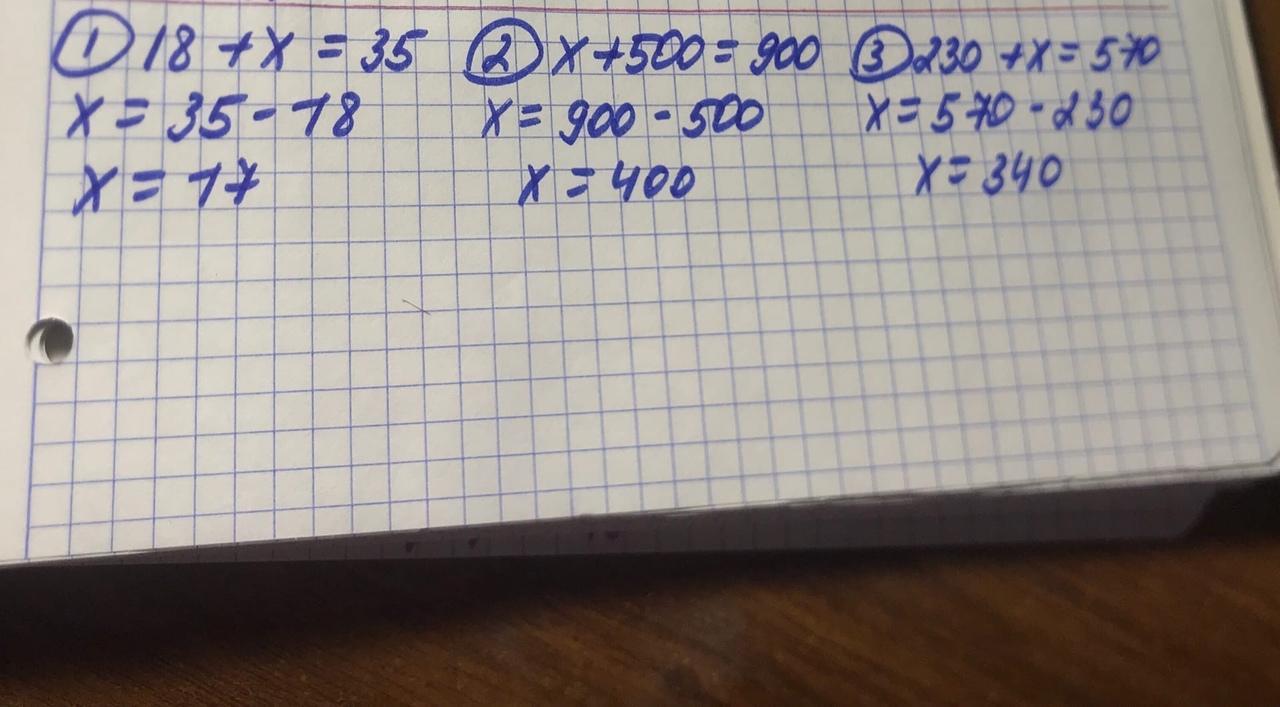 ① 18 + x = 35
x = 35 - 18
x = 17
② x + 500 = 900
x = 900 - 500
x = 400
③ 230 + x = 570
x = 570 - 230
x = 340